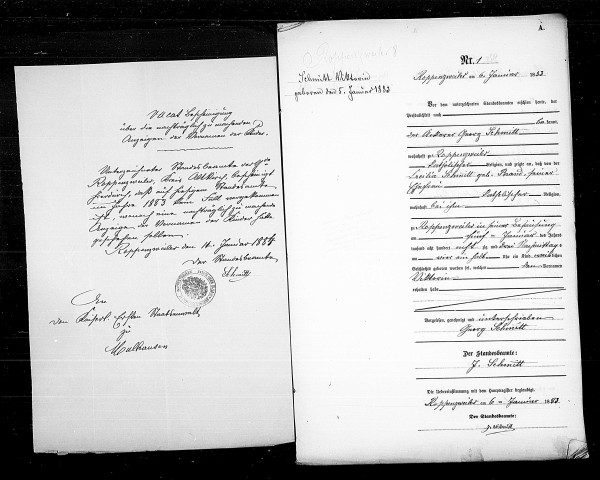 Vacat Bescheinigung
über die nachträglich zu machenden
Anzeigen der Vornamen der Kinder.
Unterzeichneter Standesbeamte der
Roppenzweiler, Kreis Altkirch, bescheinigt
hierdurch, daß auf hiesigem Standesamte
im Jahre 1883 kein Fall vorgekommen
ist, wonach eine nachträglich zu machende
Anzeige der Vornamen der Kinder hätte
geschehen sollen.
Roppenzweiler den 16. Januar 1884
der Standesbeamte
Schmitt
An
den Kaiserl. Ersten Staatsanwalt
zu
Mulhausen
Schmitt Viktorin
geboren den 5. Januar 1883
A.
Nr. 1
Roppenzweiler am 6 Januar 1883.
Vor dem unterzeichneten Standesbeamten erschien heute, der
Persönlichkeit nach
be kannt,
der Ackerer Georg Schmitt
wohnhaft zu Roppenzweiler
katholischer Religion, und zeigte an, daß von der
Cecilia Schmitt geb. seiner
Ehefrau
katholischer Religion,
wohnhaft bei ihm
zu Roppenzweiler in seiner Behausung
am fünf ten Januar des Jahres
tausend acht hundert achtzig und drei Nachmittags
um vier ein halb Uhr ein Kind
Geschlechts geboren worden sei, welches den Vornamen
Viktorin
erhalten habe
Vorgelesen, genehmigt und unterschrieben
Georg Schmitt
Der Standesbeamte:
J. Schmitt
Die Uebereinstimmung mit dem Hauptregister beglaubigt.
Roppenzweiler am 6 ten Januar 1883.
Der Standesbeamte:
J. Schmitt